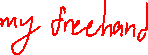 my freehand